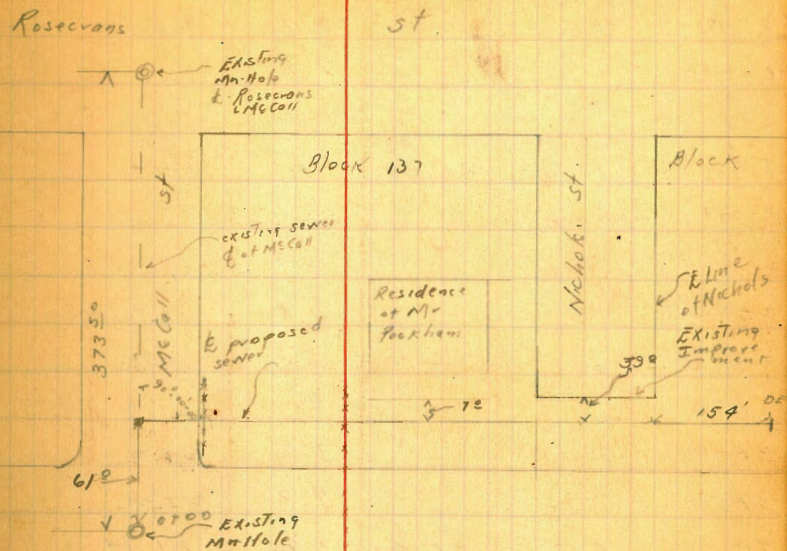 Rosecrans st
Existing
Mn-Hole
℄ Rosecrans
& McCall
Block 137
Block
st
McCall
existing sewer
℄ of McCall
Nichols st
Residence
of Mr
Peckham
E Line
of Nichols
Existing
Improve
ment
℄ proposed
sewer
373 50
90°00'
7 0
154'
61 0
0+00
Existing
Mn-Hole